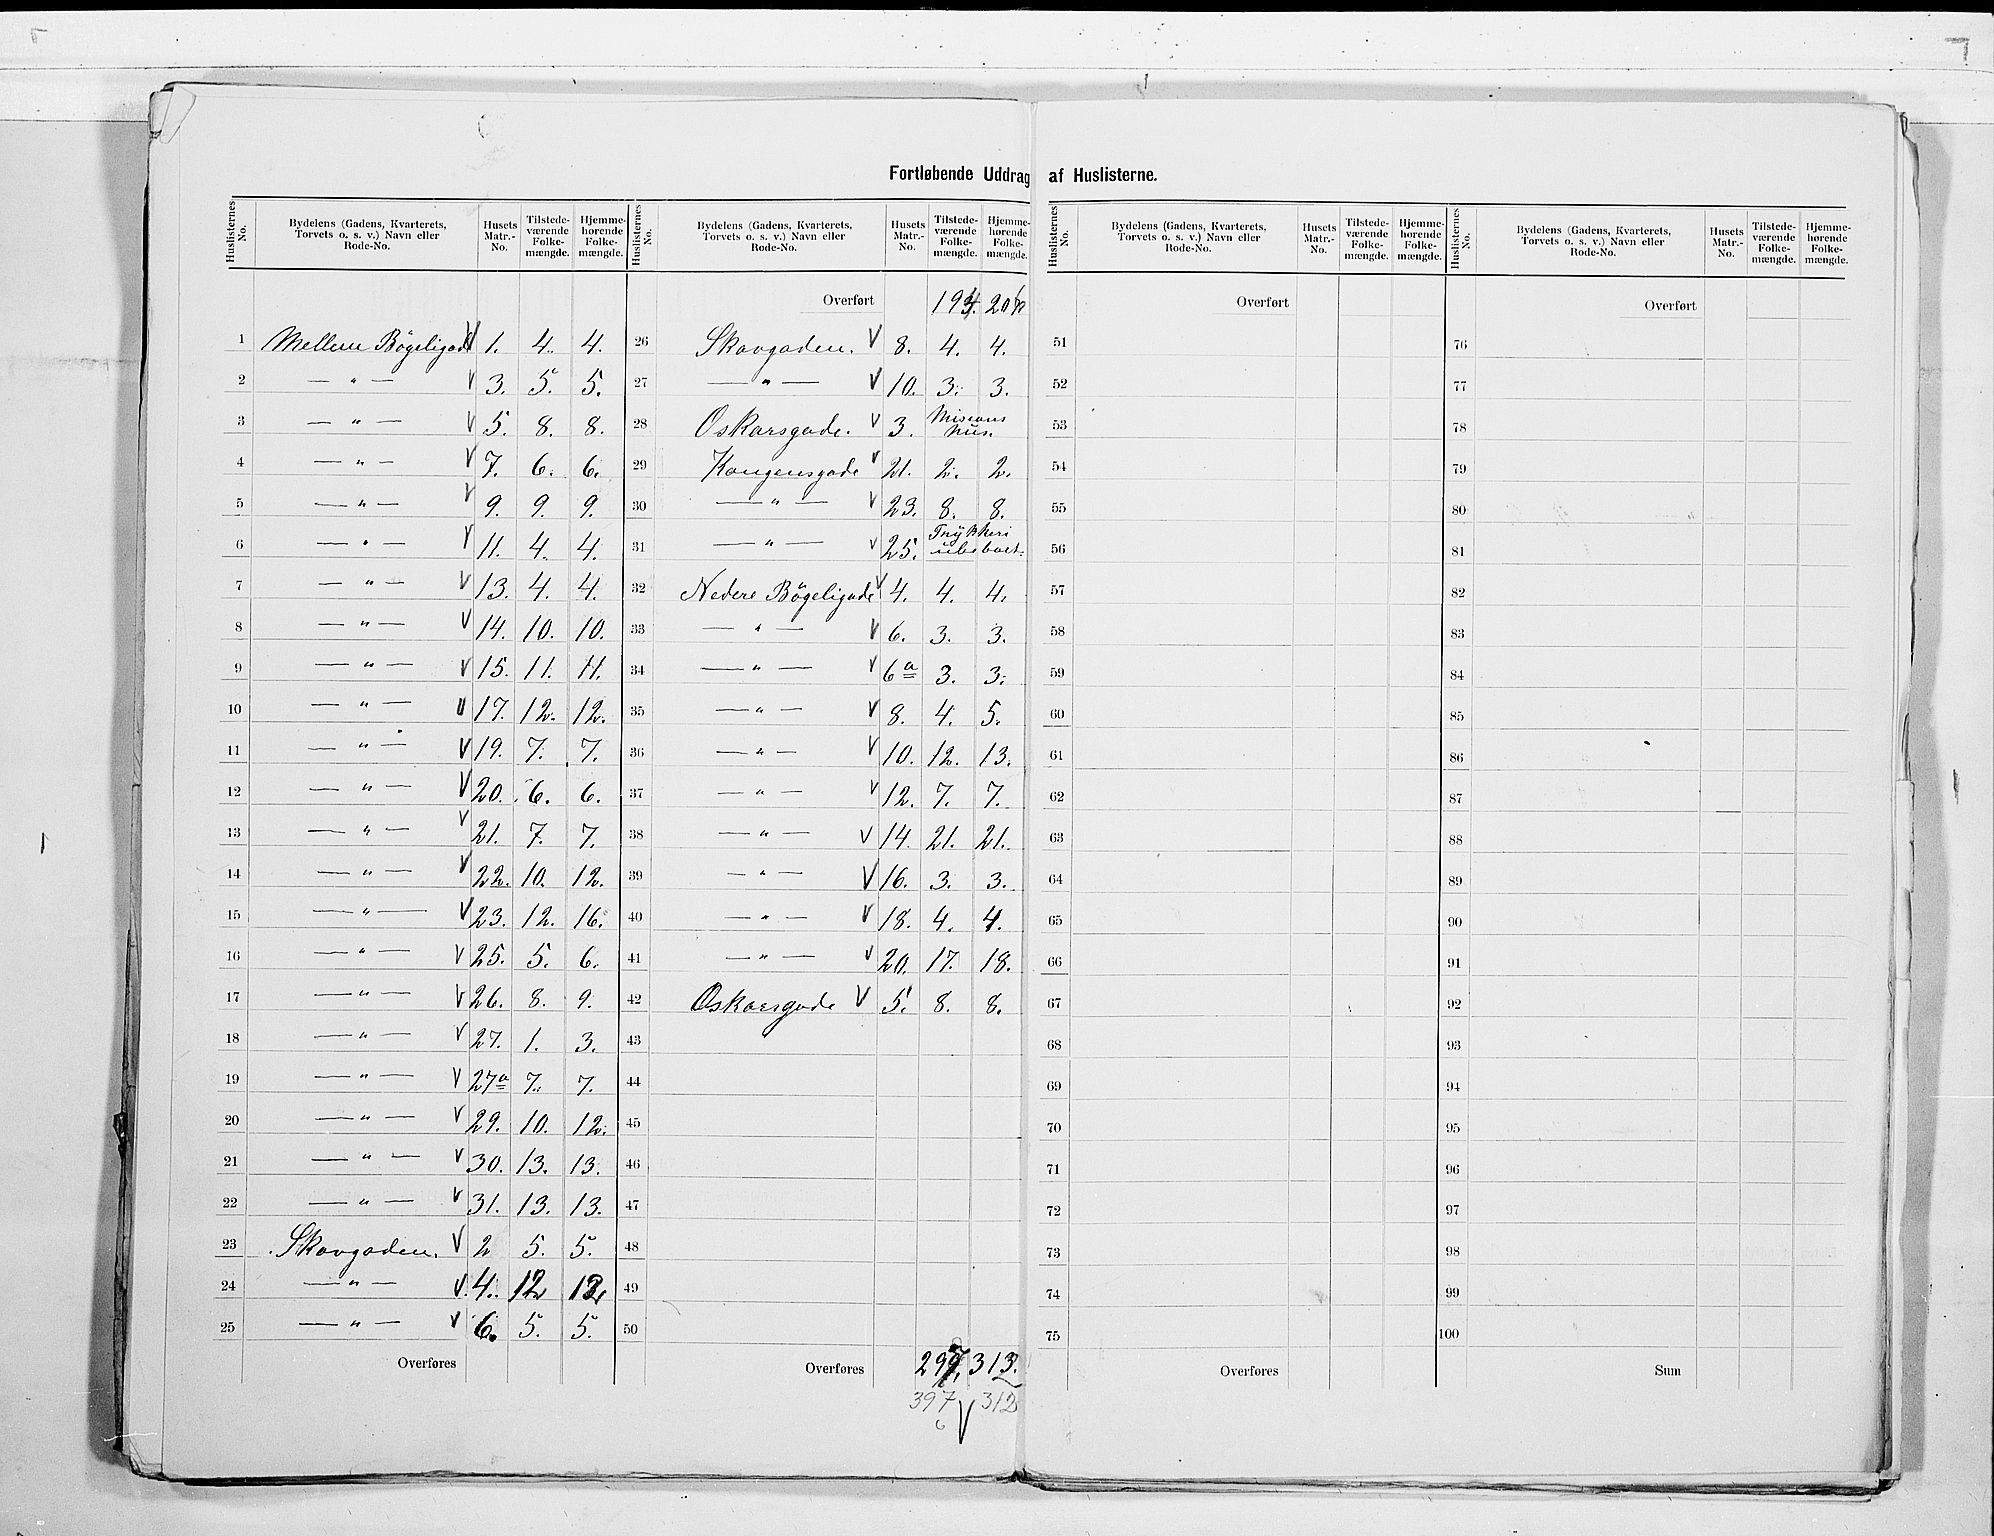 Fortløbende Uddrag af Huslisterne.
Huslisternes No. | Bydelens (Gadens, Kvarterets, Torvets o. s. v.) Navn eller Rode-No. | Husets Matr.-No. | Tilstedeværende Folkemængde. | Hjemmehørende Folkemængde.
1 Mellem Bögeligade V 1. 4. 4.
2 — " — V 3. 5. 5.
3 — " — V 5. 8. 8.
4 — " — V 7. 6. 6.
5 — " — V 9. 9. 9.
6 — " — V 11. 4. 4.
7 — " — V 13. 4. 4.
8 — " — V 14. 10. 10.
9 — " — V 15. 11. 11.
10 — " — V 17. 12. 12.
11 — " — V 19. 7. 7.
12 — " — V 20. 6. 6.
13 — " — V 21. 7. 7.
14 — " — V 22. 10. 12.
15 — " — V 23. 12. 16.
16 — " — V 25. 5. 6.
17 — " — V 26. 8. 9.
18 — " — V 27. 1. 3.
19 — " — V 27a 7. 7.
20 — " — V 29. 10. 12.
21 — " — V 30. 13. 13.
22 — " — V 31. 13. 13.
23 Skovgaden. V 2 5. 5.
24 — " — V. 4. 12
25 — " — V 6. 5. 5.
Overføres
Huslisternes No. | Bydelens (Gadens, Kvarterets, Torvets o. s. v.) Navn eller Rode-No. | Husets Matr.-No. | Tilstedeværende Folkemængde. | Hjemmehørende Folkemængde.
Overført
26 Skovgaden. V 8. 4. 4.
27 — " — V 10. 3. 3.
28 Oskarsgade. V 3. Misions hus.
29 Kongensgade V 21. 2. 2.
30 — " — V 23. 8. 8.
31 — " — V 25. Trykkeri ubeboet.
32 Nedere Bögeligade V 4. 4. 4.
33 — " — V 6. 3. 3.
34 — " — V 6a 3. 3.
35 — " — V 8. 4. 5.
36 — " — V 10. 12. 13.
37 — " — V 12. 7. 7.
38 — " — V 14. 21. 21.
39 — " — V 16. 3. 3.
40 — " — V 18. 4. 4.
41 — " — V 20. 17. 18.
42 Oskarsgade V 5. 8. 8.
43
44
45
46
47
48
49
50
Overføres
397 312
V
Huslisternes No. | Bydelens (Gadens, Kvarterets, Torvets o. s. v.) Navn eller Rode-No. | Husets Matr.-No. | Tilstedeværende Folkemængde. | Hjemmehørende Folkemængde.
Overført
51
52
53
54
55
56
57
58
59
60
61
62
63
64
65
66
67
68
69
70
71
72
73
74
75
Overføres
Huslisternes No. | Bydelens (Gadens, Kvarterets, Torvets o. s. v.) Navn eller Rode-No. | Husets Matr.-No. | Tilstedeværende Folkemængde. | Hjemmehørende Folkemængde.
Overført
76
77
78
79
80
81
82
83
84
85
86
87
88
89
90
91
92
93
94
95
96
97
98
99
100
Sum